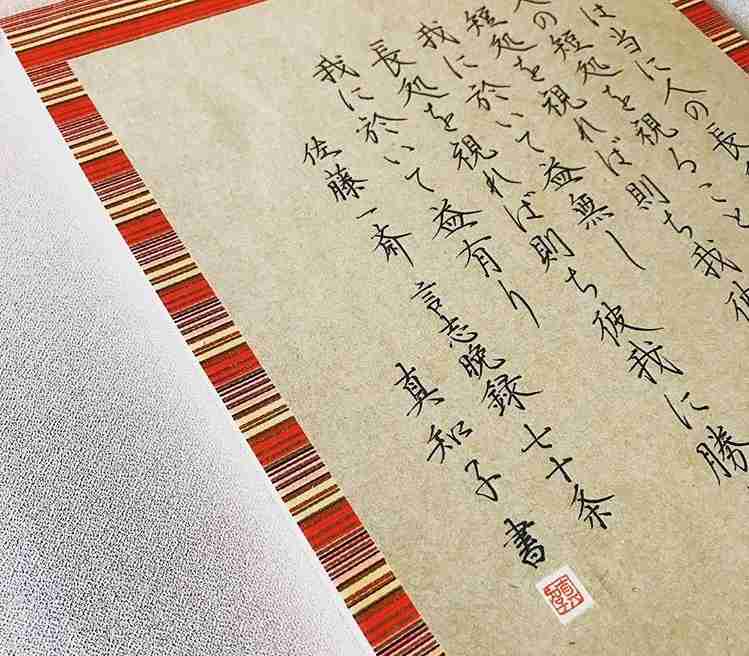 は当に人の長
人の短処を視ること
短処を視れば則ち我彼
我に於いて益無し
長処を視れば則ち彼我に勝
我に於いて益有り
佐藤一斎 言志晩録 七十条
真知子 書